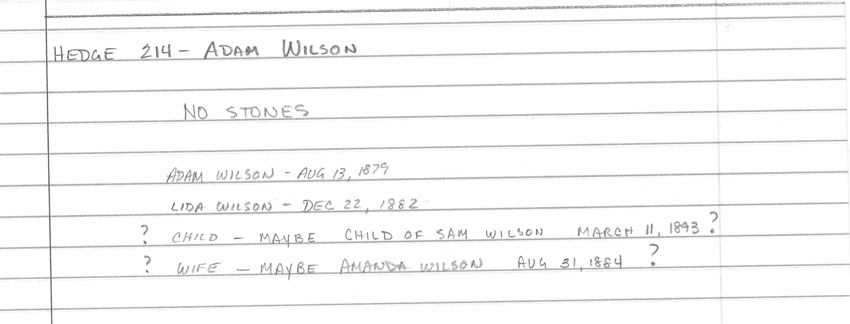 HEDGE 214 - ADAM WILSON
NO STONES
ADAM WILSON - AUG 13, 1879
LIDA WILSON - DEC 22, 1882
? CHILD - MAYBE CHILD OF SAM WILSON MARCH 11, 1893 ?
? WIFE - MAYBE AMANDA WILSON AUG 31, 1884 ?